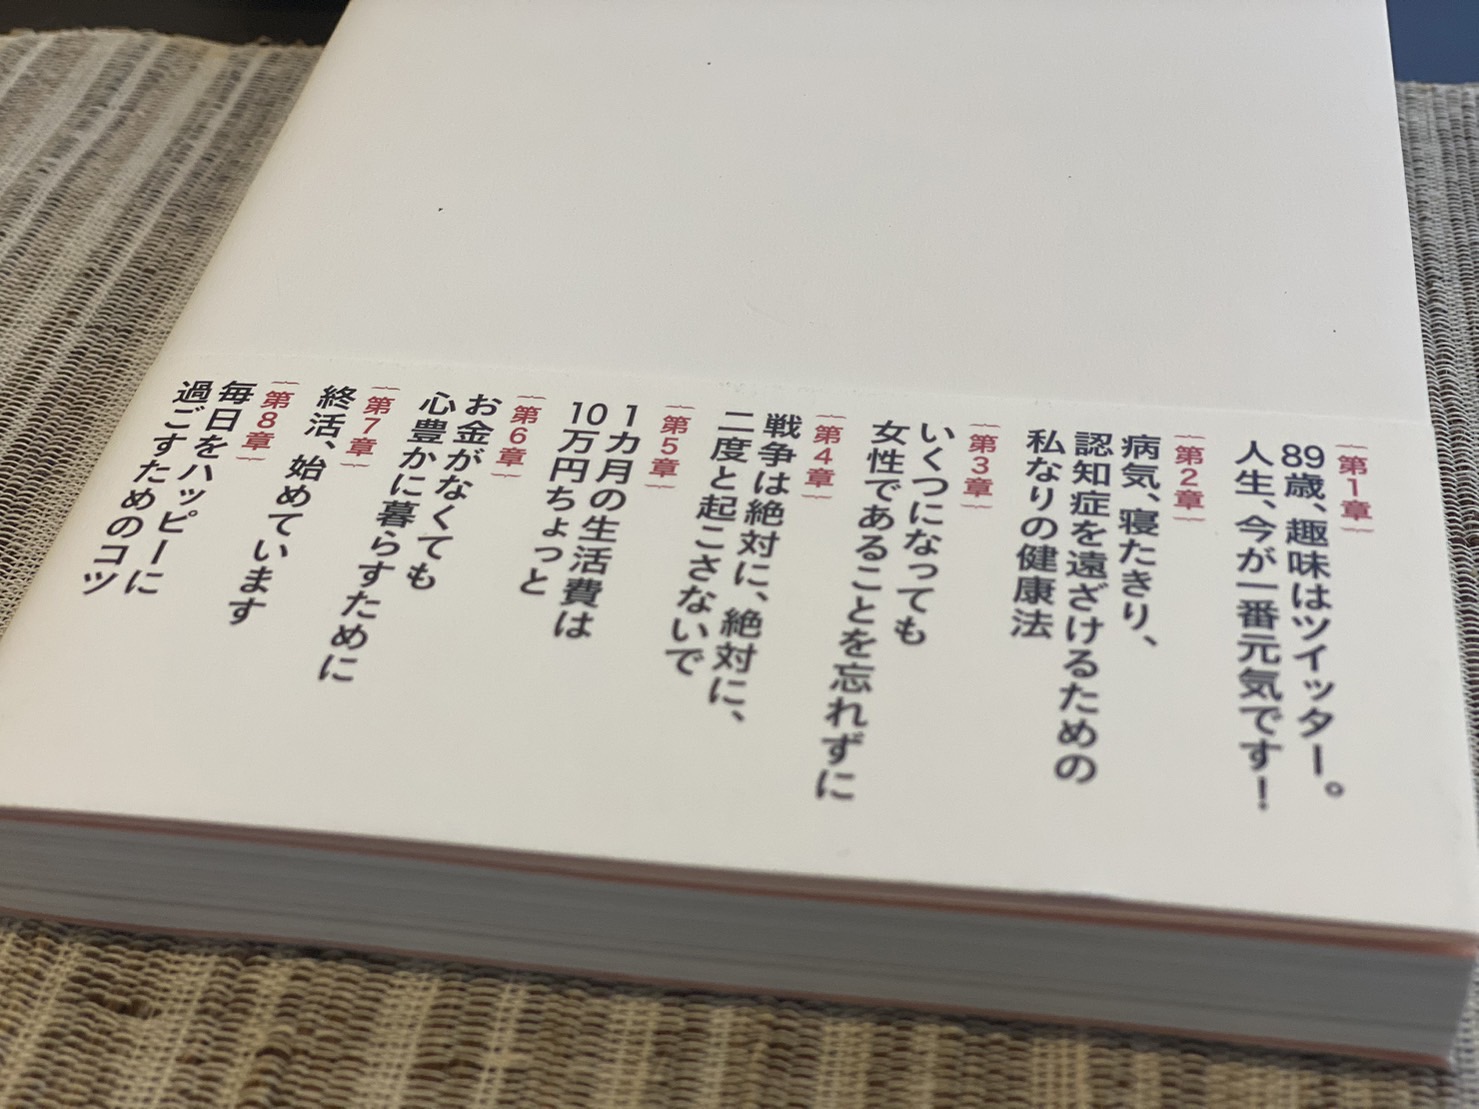 第1章
89歳、趣味はツイッター。
人生、今が一番元気です！
第2章
病気、寝たきり、
認知症を遠ざけるための
私なりの健康法
第3章
いくつになっても
女性であることを忘れずに
第4章
戦争は絶対に、絶対に、
二度と起こさないで
第5章
1カ月の生活費は
10万円ちょっと
第6章
お金がなくても
心豊かに暮らすために
第7章
終活、始めています
第8章
毎日をハッピーに
過ごすためのコツ